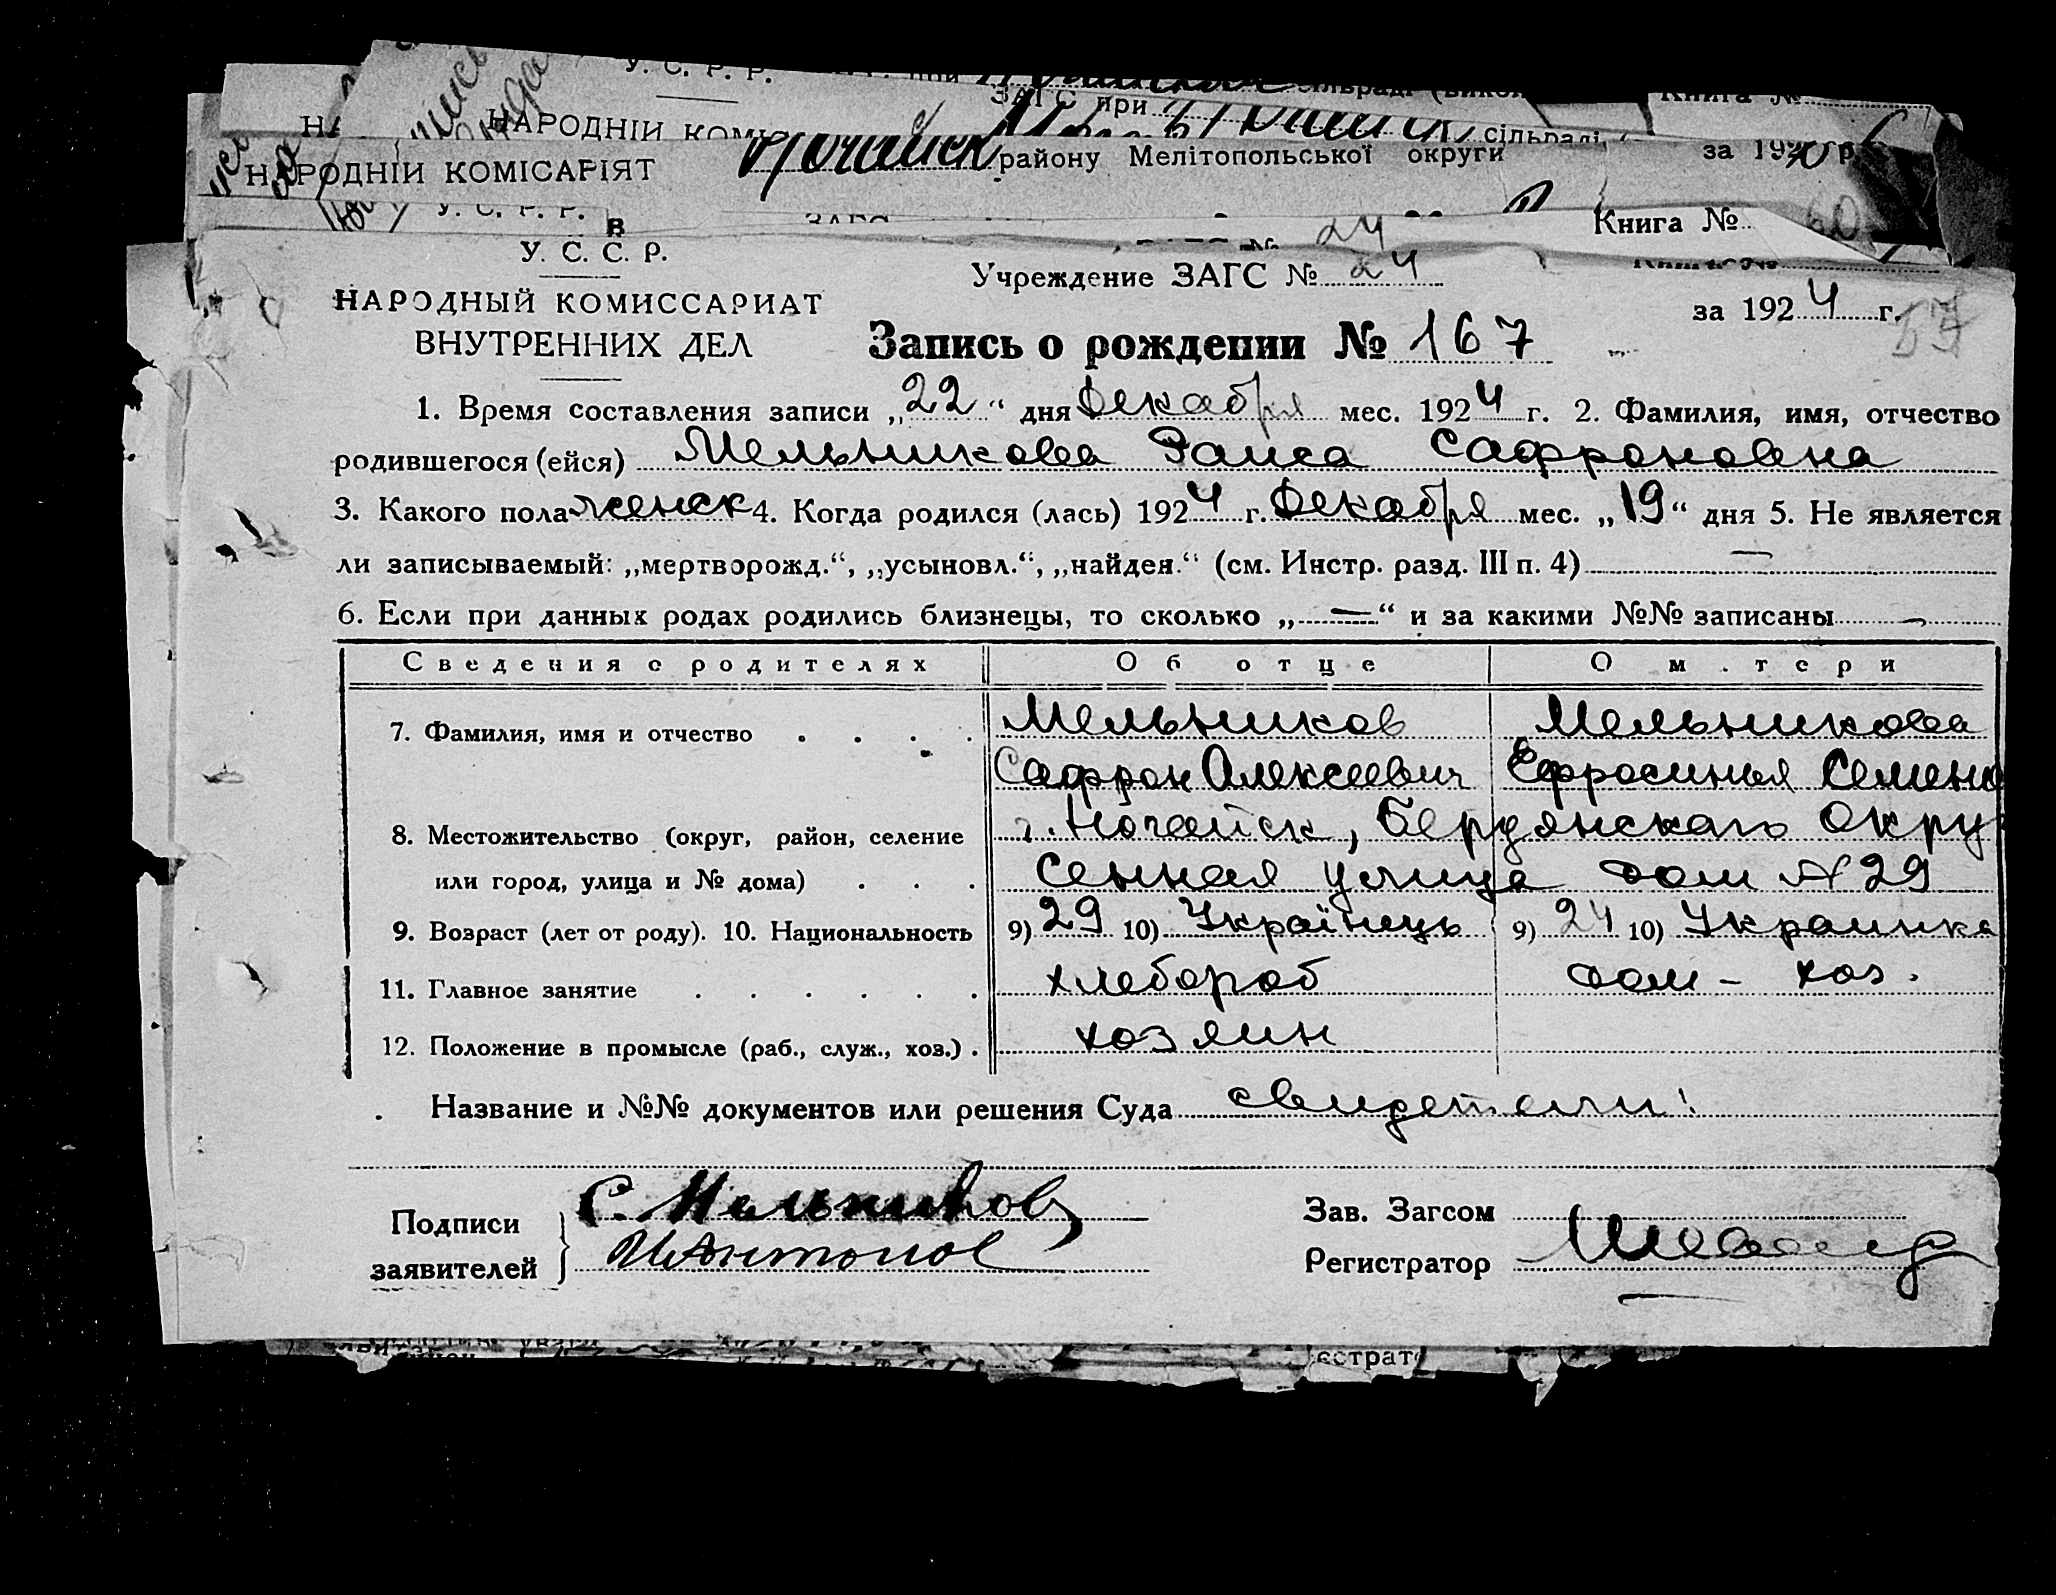 У. С. Р. Р.
ЗАГС при сільраді
НАРОДНІЙ
НАРОДНІЙ КОМІСАРІЯТ Ногайськ району Мелітопольської округи за 192
У. С. Р. Р. Книга № 60
У. С. С. Р.
Учреждение ЗАГС № 24
НАРОДНЫЙ КОМИССАРИАТ
ВНУТРЕННИХ ДЕЛ
за 1924 г. 57
Запись о рождении № 167
1. Время составления записи „22“ дня Декабря мес. 1924 г. 2. Фамилия, имя, отчество
родившегося (ейся) Мельникова Раиса Сафроновна
3. Какого пола женск 4. Когда родился (лась) 1924 г. Декабря мес. „19“ дня 5. Не является
ли записываемый: „мертворожд.“, „усыновл.“, „найден.“ (см. Инстр. разд. III п. 4) —
6. Если при данных родах родились близнецы, то сколько „—“ и за какими №№ записаны —
Сведения о родителях Об отце О м.тери
7. Фамилия, имя и отчество . . . . Мельников Мельникова
Сафрон Алексеевич Ефросинья Семено
8. Местожительство (округ, район, селение г. Ногайск, Бердянскаго Окру
или город, улица и № дома) . . . Сенная улица дом № 29
9. Возраст (лет от роду). 10. Национальность 9) 29 10) Українець 9) 24 10) Украинка
11. Главное занятие . . . . . . хлебороб дом - хоз.
12. Положение в промысле (раб., служ., хоз.) . хозяин
Название и №№ документов или решения Суда свидетели:
Подписи
заявителей
С. Мельников
Зав. Загсом
Регистратор